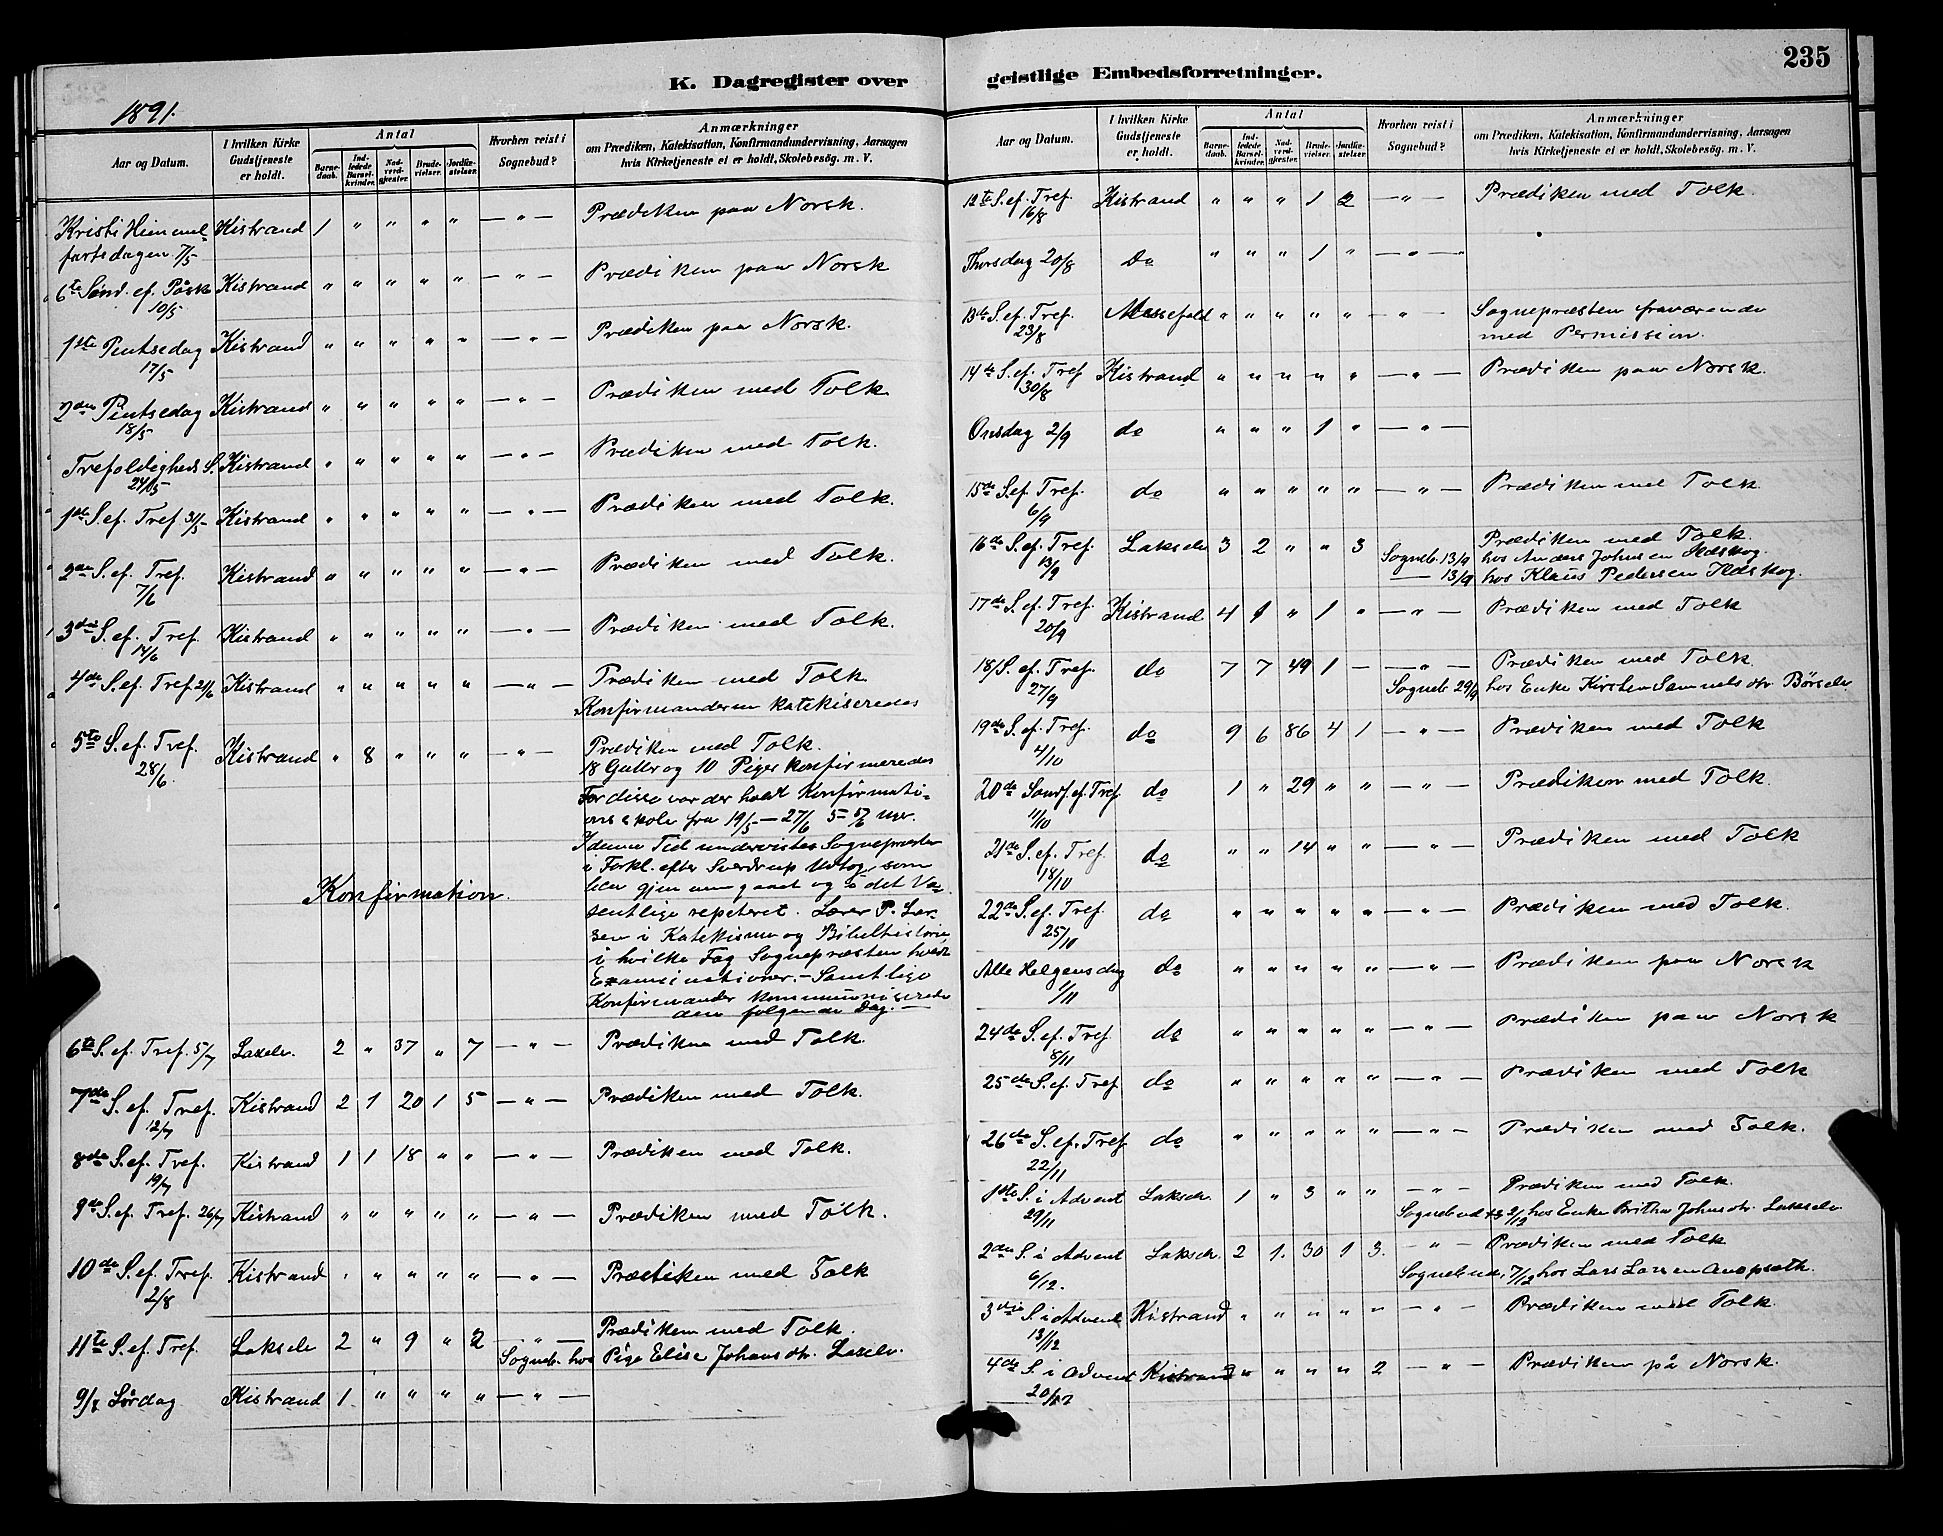 K. Dagregister over
1891.
Aar og Datum.
I hvilken Kirke Gudstjeneste er holdt.
Antal
Barnedaab.
Indledede Barselkvinder.
Nadverdgjester.
Brudevielser.
Jordfæstelser.
Hvorhen reist i Sognebud?
Anmærkninger
om Prædiken, Katekisation, Konfirmandundervisning, Aarsagen
hvis Kirketjeneste ei er holdt, Skolebesög. m. V.
Kristi Himmel- Kistrand 1 " " " " — " — Prædiken paa Norsk.
fartsdagen 7/5
6te Sønd. ef. Påske Kistrand " " " " " — " — Prædiken paa Norsk
10/5
1ste Pintsedag Kistrand " " " " " — " — Prædiken paa Norsk.
17/5
2den Pintsedag Kistrand " " " " " — " — Prædiken med Tolk
18/5
Trefoldigheds S. Kistrand " " " " " — " — Prædiken med Tolk.
24/5
1ste S. ef. Tref. 31/5 Kistrand " " " " " — " — Prædiken med Tolk.
2den S. ef. Tref. Kistrand " " " " " — " — Prædiken med Tolk.
7/6
3die S. ef. Tref. Kistrand " " " " " — " — Prædiken med Tolk.
14/6
4de S. ef. Tref. 21/6 Kistrand " " " " " — " — Prædiken med Tolk
Konfirmanderne katekiseredes
5te S. ef. Tref. Kistrand " 8 " " " — " — Prædiken med Tolk.
28/6
18 Gutter og 10 Piger konfirmeredes
For disse var der holdt Konfirmati-
onsskole fra 19/5 — 27/6
I denne Tid undervistes Sognepresten
i Forkl. efter Sverdrup Udtog, som
blev gjennemgaaet og i det Væ-
Konfirmation.
sentlige repeteret. Lærer P. Lar-
sen i Katekisme og Bibelhistorie,
i hvilke Fag Sognepræsten holdt
Examinationer. — Samtlige
Konfirmander kommuniserede
den følgende Dag. —
6te S. ef. Tref. 5/7 Laxelv. 2 " 37 " 7 — " — Prædiken med Tolk.
7de S. ef. Tref. Kistrand 2 1 20 1 5 — " — Prædiken med Tolk.
12/7
8de S. ef. Tref. Kistrand 1 1 18 " " — " — Prædiken med Tolk.
19/7
9de S. ef. Tref. 26/7 Kistrand " " " " " — " — Prædiken med Tolk.
10de S. ef. Tref. Kistrand " " " " " — " — Prædiken med Tolk
2/8
11te S. ef. Tref. Lakselv 2 " 9 " 2 — " — Prædiken med Tolk.
Sogneb. hos Pige Elise Johansdtr. Laxelv.
9/8 Lørdag Kistrand 1 " " " " — " —
geistlige Embedsforretninger.
235
Aar og Datum.
I hvilken Kirke Gudstjeneste er holdt.
Antal
Barnedaab.
Indledede Barselkvinder.
Nadverdgjester.
Brudevielser.
Jordfæstelser.
Hvorhen reist i Sognebud?
Anmærkninger
om Prædiken, Katekisation, Konfirmandundervisning, Aarsagen
hvis Kirketjeneste ei er holdt, Skolebesög. m. V.
12te S. ef. Tref. Kistrand " " " 1 2 — " — Prædiken med Tolk.
16/8
Thorsdag 20/8 do " " " 1 " — " —
13de S. ef. Tref. Messefald " " " " " — " — Sognepresten fraværende
23/8 med Permission.
14de S. ef. Tref Kistrand " " " " " — " — Prædiken paa Norsk.
30/8
Onsdag 2/9 do " " " 1 " — " —
15de S. ef. Tref. do " " " " " — " — Prædiken med Tolk
6/9
16de S. ef. Tref. Lakselv 3 2 " " 3 Prædiken med Tolk.
13/9 Sogneb. 13/9 hos Anders Johnsen Ildskog.
— 13/9 hos Klaus Pedersen Ildskog.
17de S. ef. Tref. Kistrand 4 1 " 1 " — " — Prædiken med Tolk
20/9
18/S. ef. Tref. do 7 7 49 1 — — " — Prædiken med Tolk.
27/9 Sogneb. 29/9 hos Enke Kirsten Samuelsdtr Børselv
19de S. ef. Tref. do 9 6 86 4 1 — " — Prædiken med Tolk
4/10
20de Sønd. ef. Tref. do 1 " 29 " " — " — Prædiken med Tolk.
11/10
21de S. ef. Tref. do " " 14 " " — " — Prædiken med Tolk
18/10
22de S. ef. Tref do " " " " " — " — Prædiken med Tolk.
25/10
Alle Helgensdag do " " " " " — " — Prædiken paa Norsk
1/11
24de S. ef. Tref do " " " " " — " — Prædiken paa Norsk
8/11
25de S. ef. Tref do " " " " " — " — Prædiken med Tolk
26de S. ef. Tref do " " " " " — " — Prædiken med Tolk.
22/11
1ste S. i Advent Lakselv. 1 " 3 " " — " — Prædiken med Tolk.
29/11 Sognebud 2/12 hos Enke Britha Johnsdtr. Lakselv.
2den S. i Advent Lakselv. 2 1. 30 1 3. — " — Prædiken med Tolk
6/12. Sognebud. 7/12 hos Lars Larsen
3die S. i Advent Kistrand " " " " " — " — Prædiken med Tolk.
13/12
4de S. i Advent Kistrand " " " " 2 — " — Prædiken på Norsk.
20/12